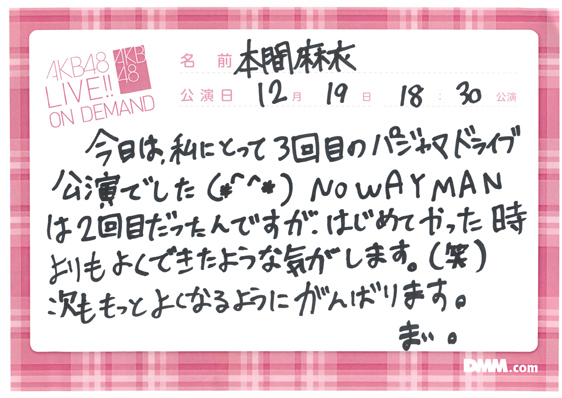 AKB48
LIVE!!
ON DEMAND
AKB
48
名 前 本間麻衣
公演日 12月 19日 18:30公演
今日は、私にとって3回目のパジャマドライブ
公演でした(*^^*) NO WAY MAN
は2回目だったんですが、はじめてやった時
よりもよくできたような気がします。(笑)
次ももっとよくなるようにがんばります。
まい。
DMM.com